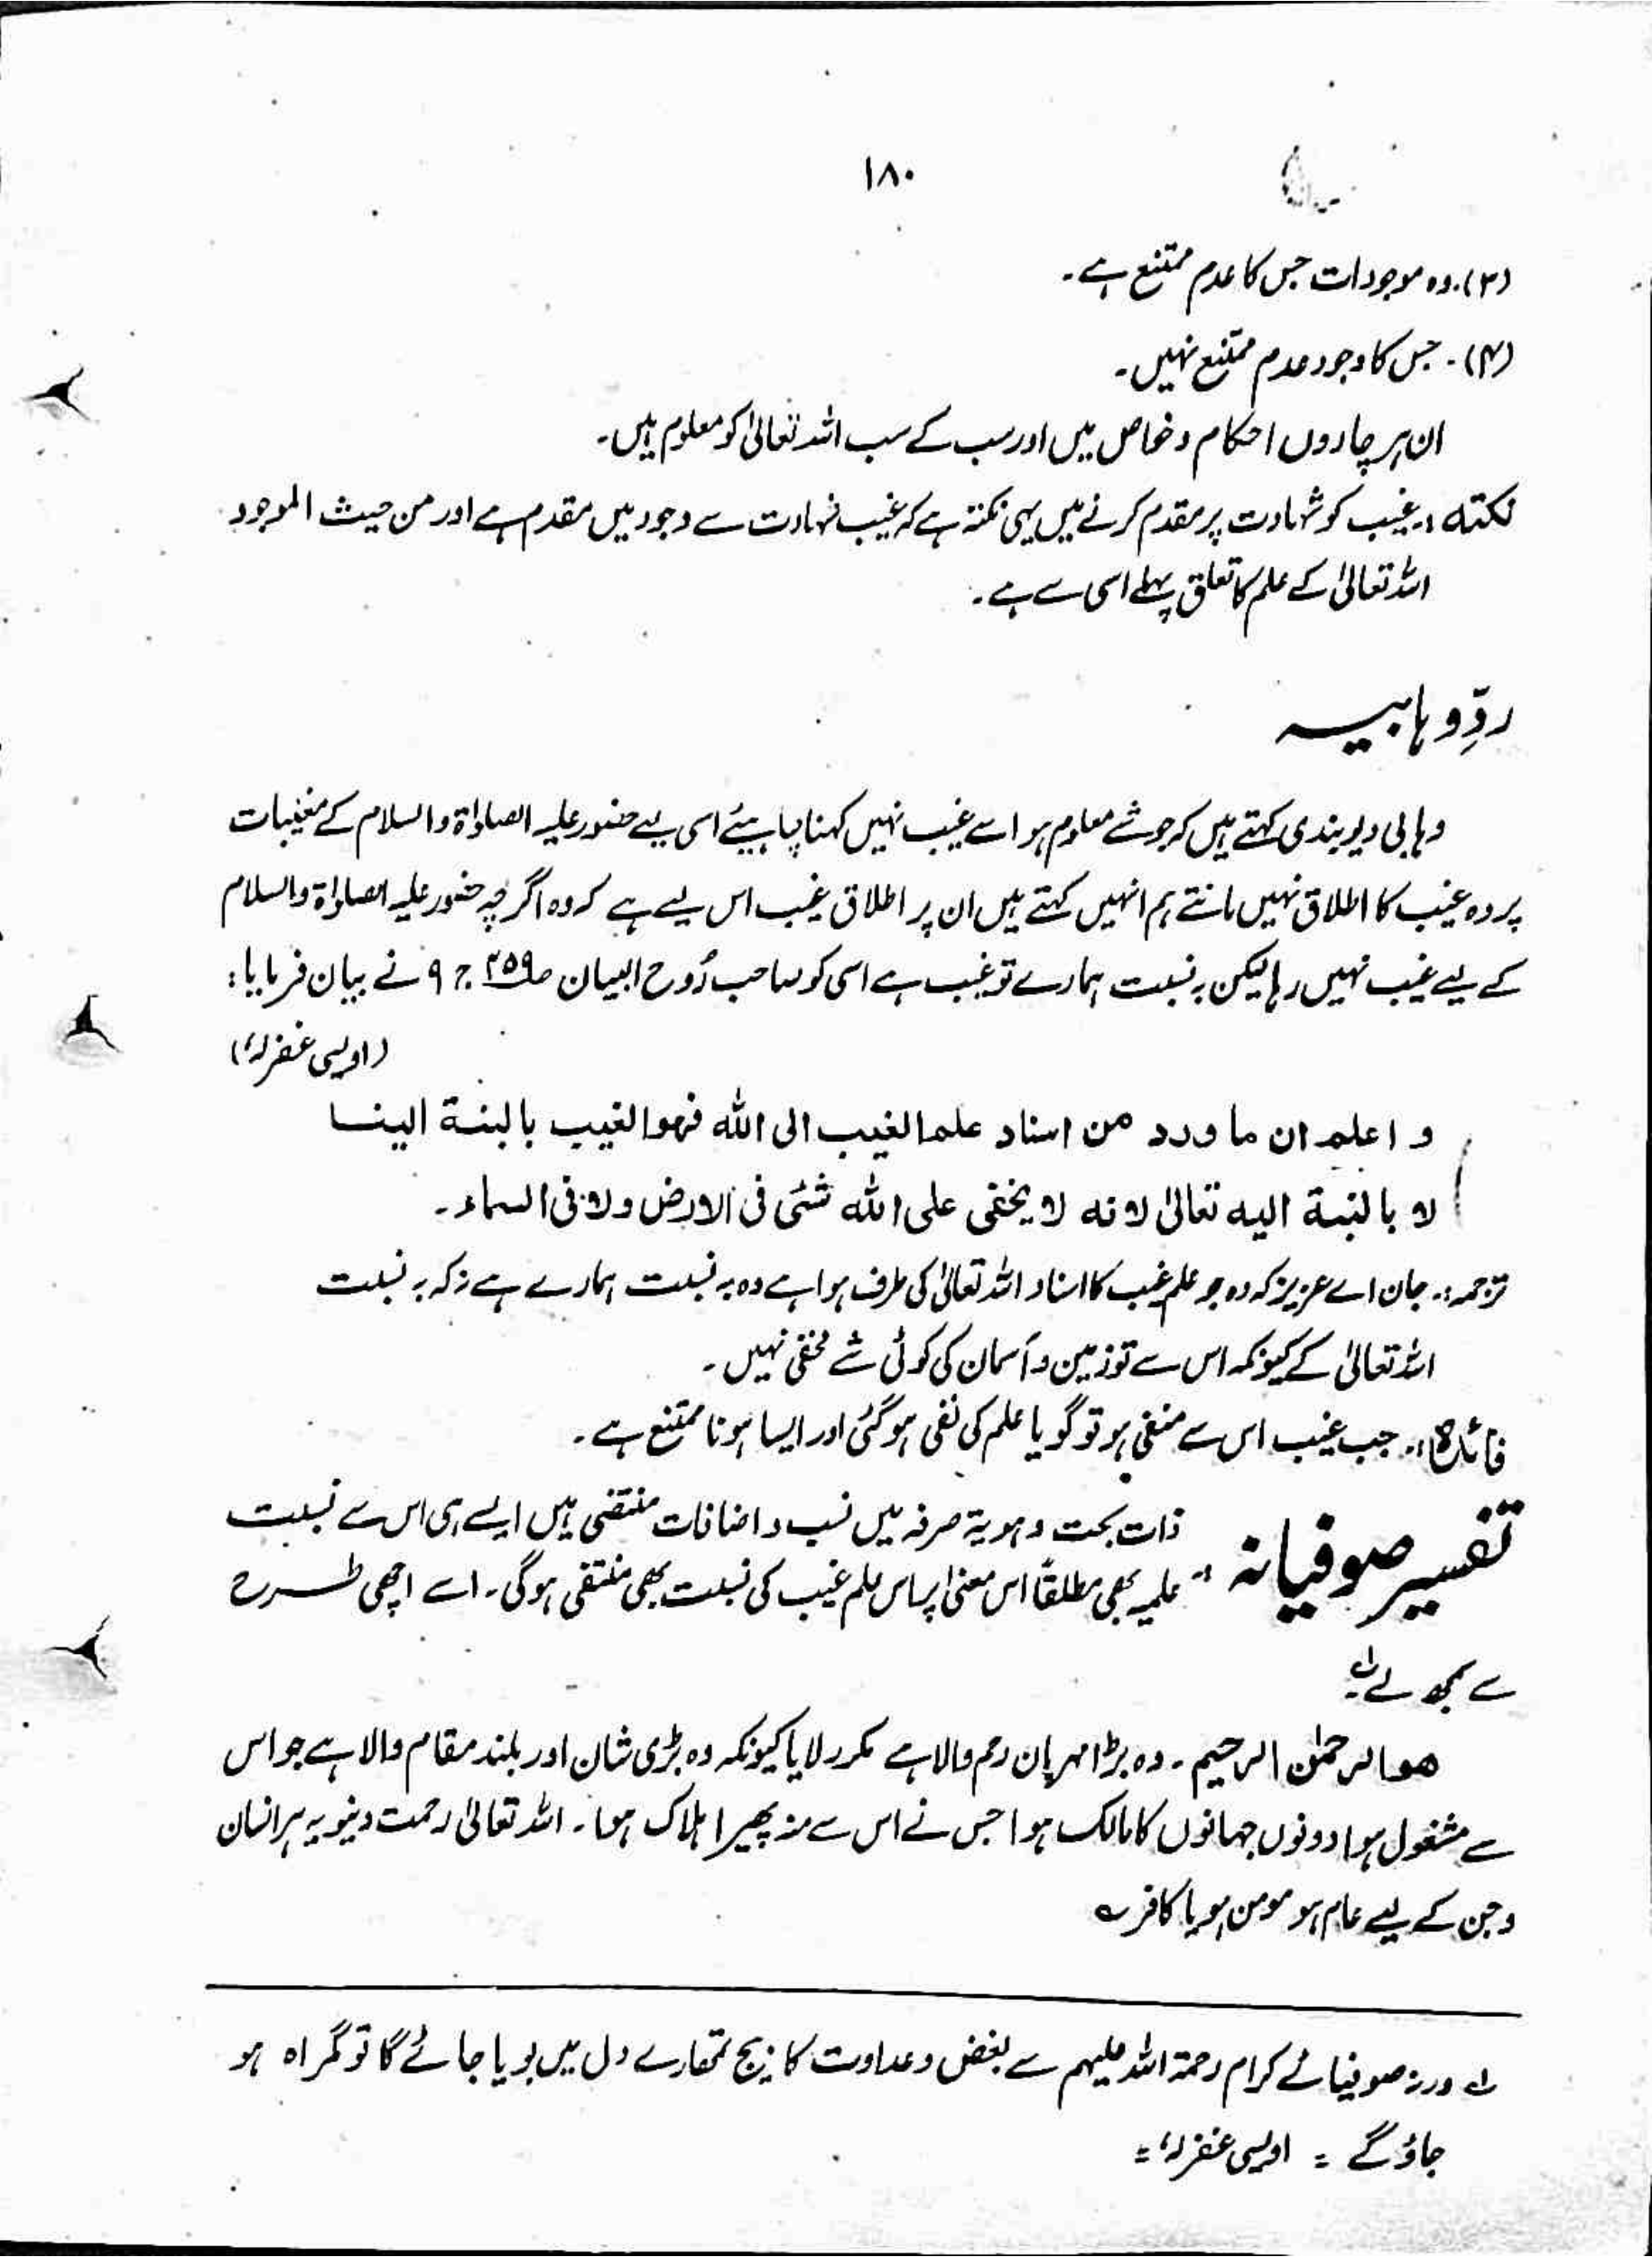 ۱۸۰
(۳)۔ وہ موجودات جس کا عدم ممتنع ہے۔
(۴)۔ جس کا وجود عدم ممتنع نہیں۔
ان ہر چاروں احکام و خواص ہیں اور سب کے سب اللہ تعالیٰ کو معلوم ہیں۔
نکتہ :۔ غیب کو شہادت پر مقدم کرنے میں یہی نکتہ ہے کہ غیب شہادت سے وجود میں مقدم ہے اور من حیث الموجود
اللہ تعالیٰ کے علم کا تعلق پہلے اسی سے ہے۔
ردِّ وہابیہ
وہابی دیوبندی کہتے ہیں کہ جو شے معلوم ہو اسے غیب نہیں کہنا چاہیئے اسی لیے حضور علیہ الصلوٰۃ والسلام کے مغیبات
پر وہ غیب کا اطلاق نہیں مانتے ہم انہیں کہتے ہیں ان پر اطلاق غیب اس لیے ہے کہ وہ اگرچہ حضور علیہ الصلوٰۃ والسلام
کے لیے غیب نہیں رہا لیکن بہ نسبت ہمارے تو غیب ہے اسی کو صاحب رُوح البیان ص۴۵۹ ج ۹ نے بیان فرمایا:
(اویسی غفرلہٗ)
و اعلم ان ما ورد من اسناد علم الغیب الی اللہ فھو الغیب بالنبۃ الینا
لا بالنبۃ الیہ تعالیٰ لانہ لا یخفی علی اللہ شئی فی الارض ولا فی السماء۔
ترجمہ :۔ جان اے عزیز کہ وہ جو علم غیب کا اسناد اللہ تعالیٰ کی طرف ہوا ہے وہ بہ نسبت ہمارے ہے نہ کہ بہ نسبت
اللہ تعالیٰ کے کیونکہ اس سے تو زمین و آسمان کی کوئی شے مخفی نہیں۔
فائدہ :۔ جب غیب اس سے منفی ہو تو گویا علم کی نفی ہو گئی اور ایسا ہونا ممتنع ہے۔
تفسیر صوفیانہ :۔ ذات بحت و ہویۃ صرفہ میں نسب و اضافات منتفی ہیں ایسے ہی اس سے نسبت
علمیہ بھی مطلقاً اس معنیٰ پر اس علم غیب کی نسبت بھی منتفی ہوگی۔ اسے اچھی طرح
سے سمجھ لے؎
ھو الرحمٰن الرحیم۔ وہ بڑا مہربان رحم والا ہے مکرر لایا کیونکہ وہ بڑی شان اور بلند مقام والا ہے جو اس
سے مشغول ہوا دونوں جہانوں کا مالک ہوا جس نے اس سے منہ پھیرا ہلاک ہوا۔ اللہ تعالیٰ رحمت دنیویہ ہر انسان
و جن کے لیے عام ہو مومن ہو یا کافر
؎ ورنہ صوفیائے کرام رحمۃ اللہ علیہم سے بغض و عداوت کا بیج تمھارے دل میں بویا جائے گا تو گمراہ ہو
جاؤ گے = اویسی غفرلہٗ =